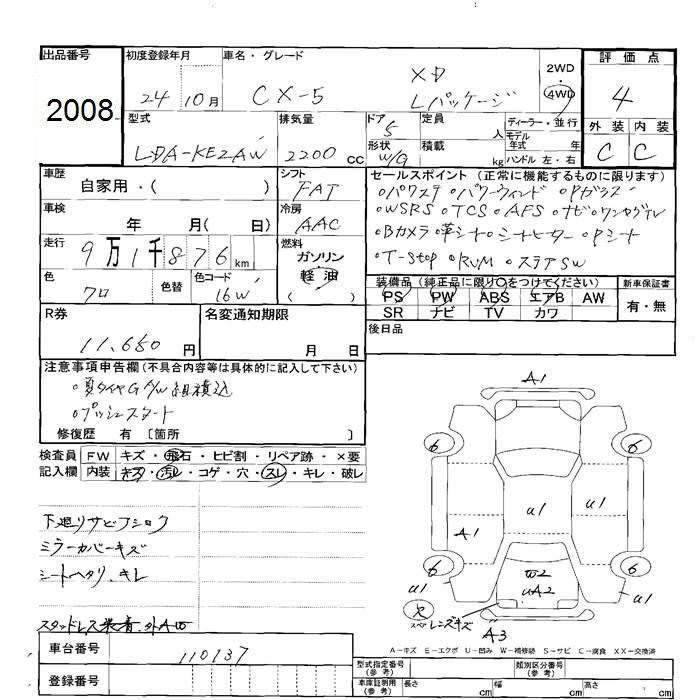 出品番号
2008
初度登録年月
24年10月
車名・グレード
CX-5
XD
Lパッケージ
2WD・
4WD
評価点
4
外装 内装
C C
型式
LDA-KE2AW
排気量
2200cc
ドア
5
形状
W/G
定員
人
積載
kg
ディーラー・並行
モデル年式
ハンドル 左・右
車歴
自家用・( )
車検
年 月( 日)
走行
9万1千876km
色
クロ
色替
色コード
16W
シフト
FAT
冷房
AAC
燃料
ガソリン
軽油
( )
セールスポイント(正常に機能するものに限ります)
・パワステ ・パワーウィンド ・Pガラス
・WSRS ・TCS ・AFS ・ナビ・ワンセグTV
・Bカメラ ・革シート・シートヒーター ・Pシート
・T-Stop ・RVM ・ステアSW
装備品(純正品に限り○をつけてください)
PS PW ABS エアB AW
SR ナビ TV カワ
新車保証書
有・無
後日品
R券
11,650円
名変通知期限
月 日
注意事項申告欄(不具合内容等は具体的に記入して下さい)
・夏タイヤG A/W組積込
・プッシュスタート
修復歴 有 〔箇所 〕
検査員
記入欄
FW キズ・飛石・ヒビ割・リペア跡・×要
内装 キズ・汚レ・コゲ・穴・スレ・キレ・破レ
下廻リサビフショク
ミラーカバーキズ
シートヘタリ、キレ
スタッドレス装着、外A
A1
6 6
A1 U1 U1
6 6
U1 W2 U1
UA2
レンズキズ
A3
A-キズ E-エクボ U-凹み W-補修跡 S-サビ C-腐食 XX-交換済
車台番号
110137
登録番号
型式指定番号
(参考)
類別区分番号
(参考)
車庫証明用
(参考)
長さ cm 幅 cm 高さ cm